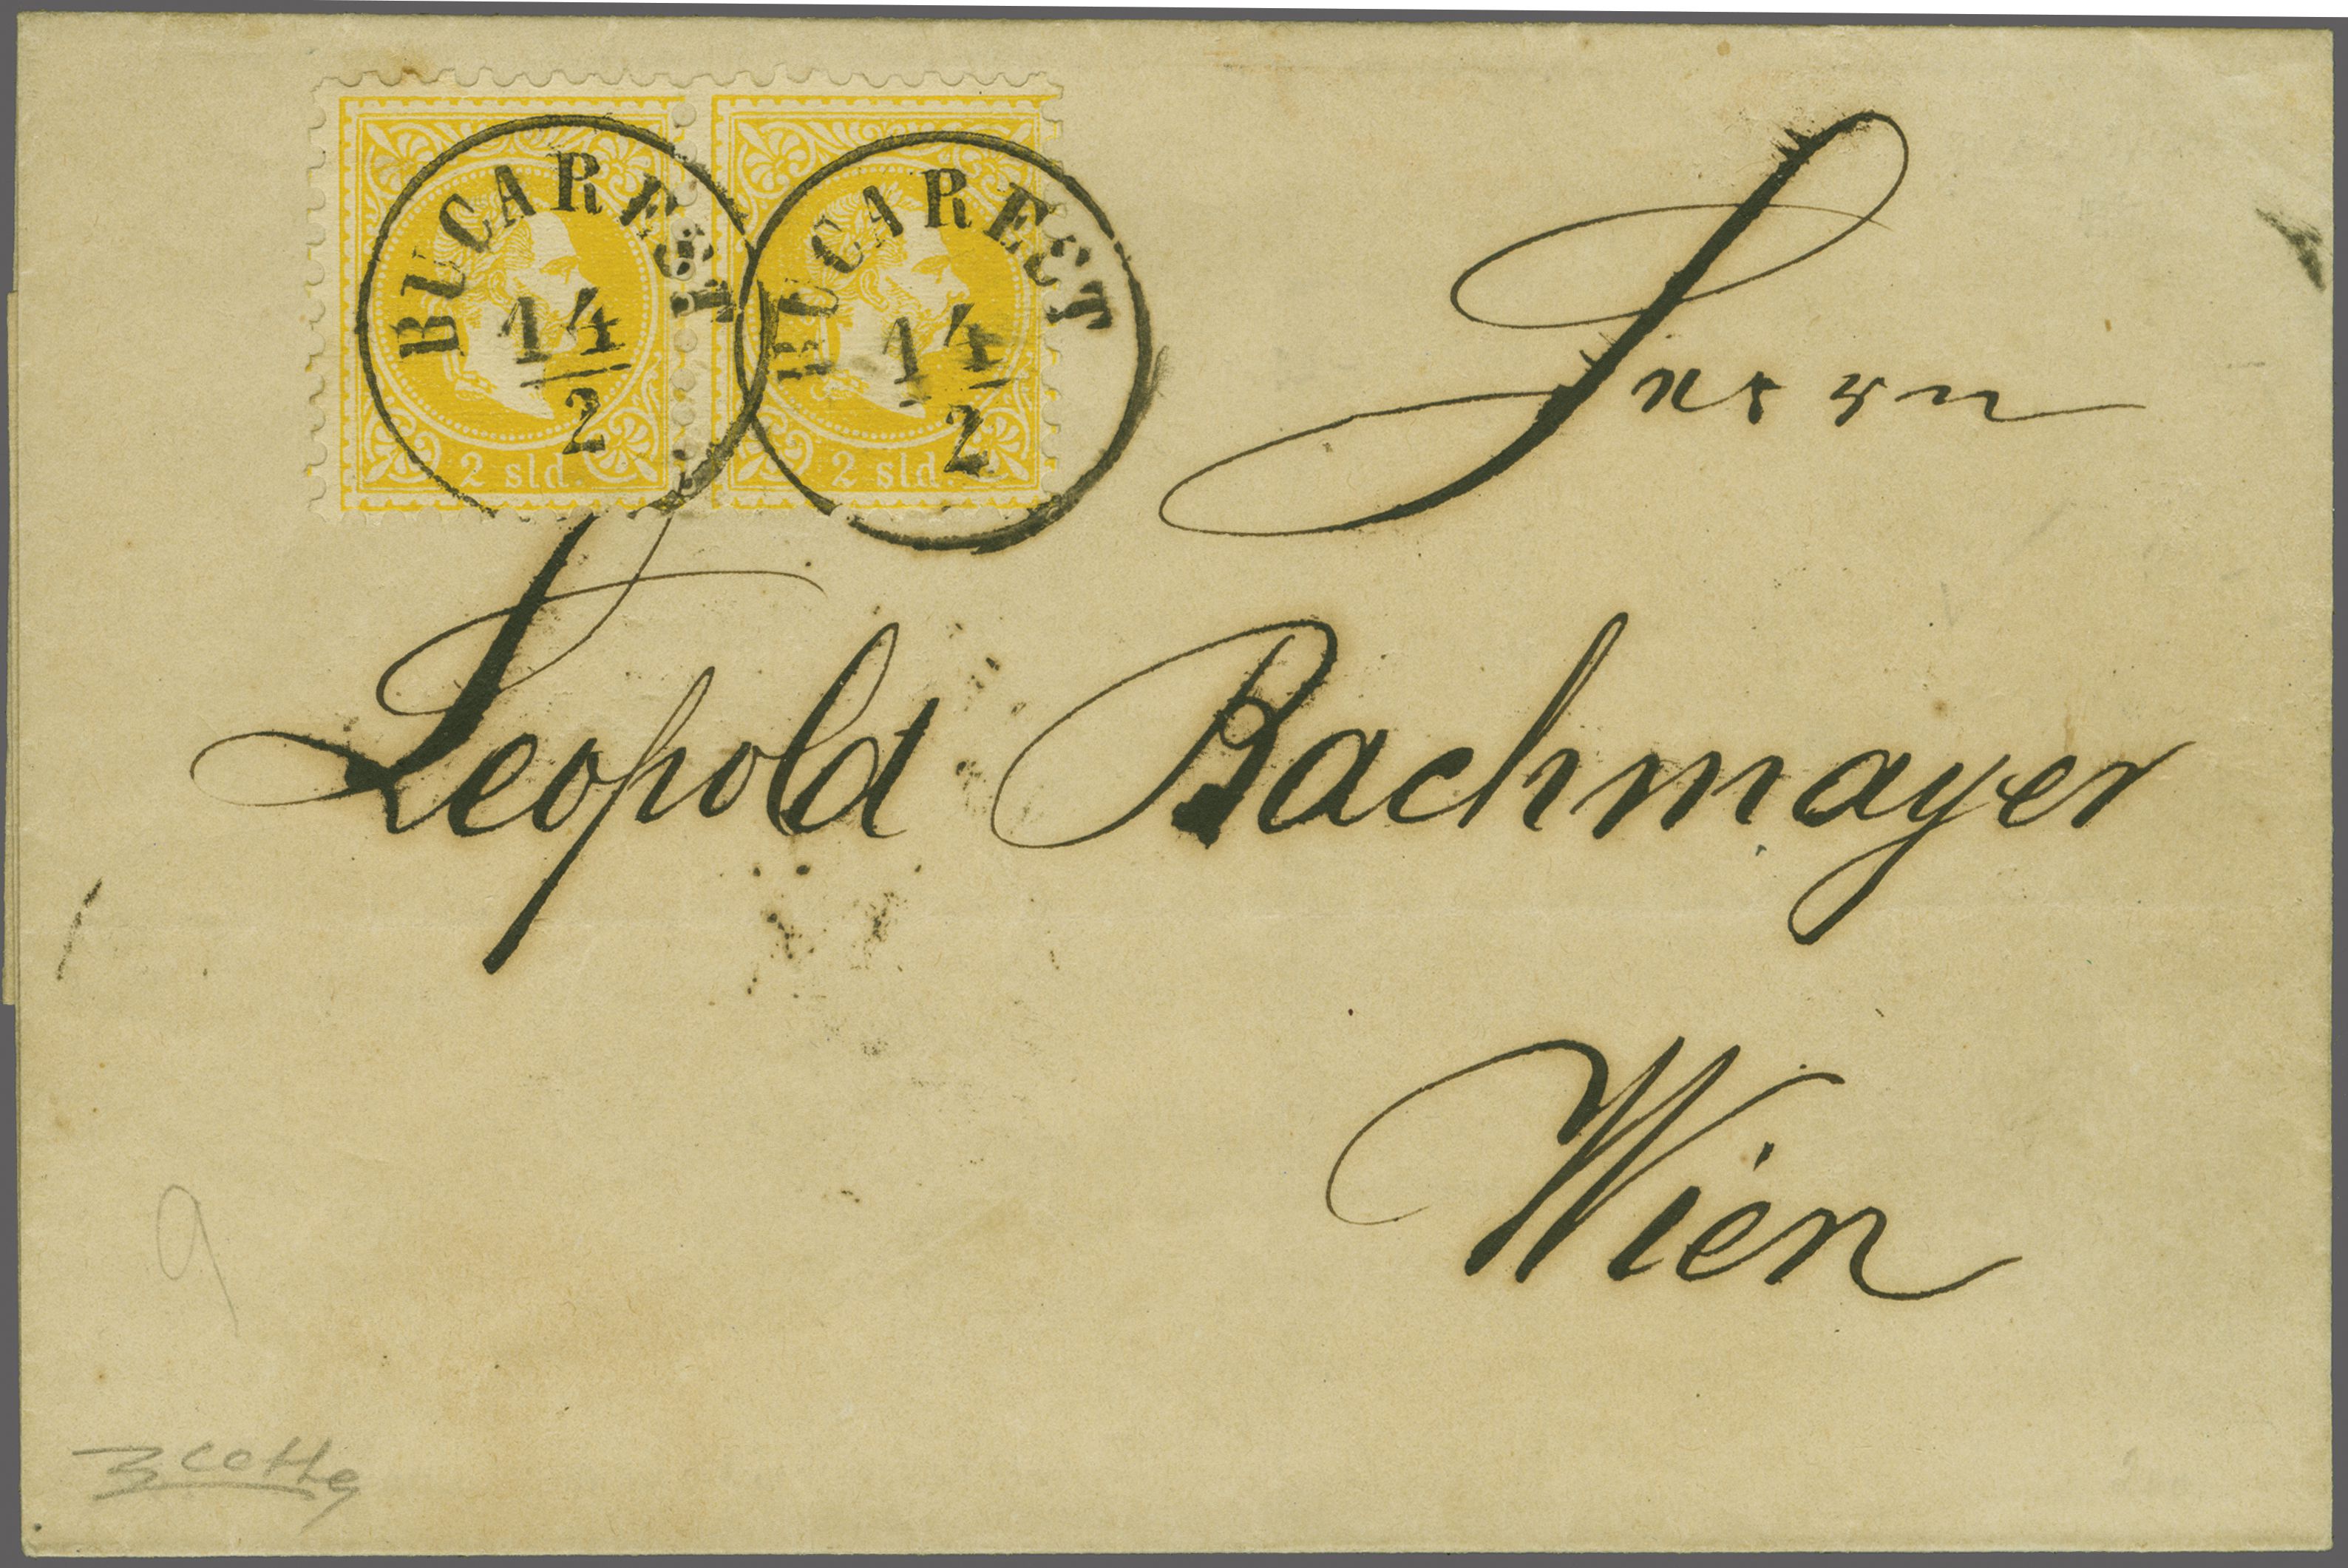 BUCAREST
14
2
2 sld.
BUCAREST
14
2
2 sld.
Herrn
Leopold Bachmayer
Wien
9